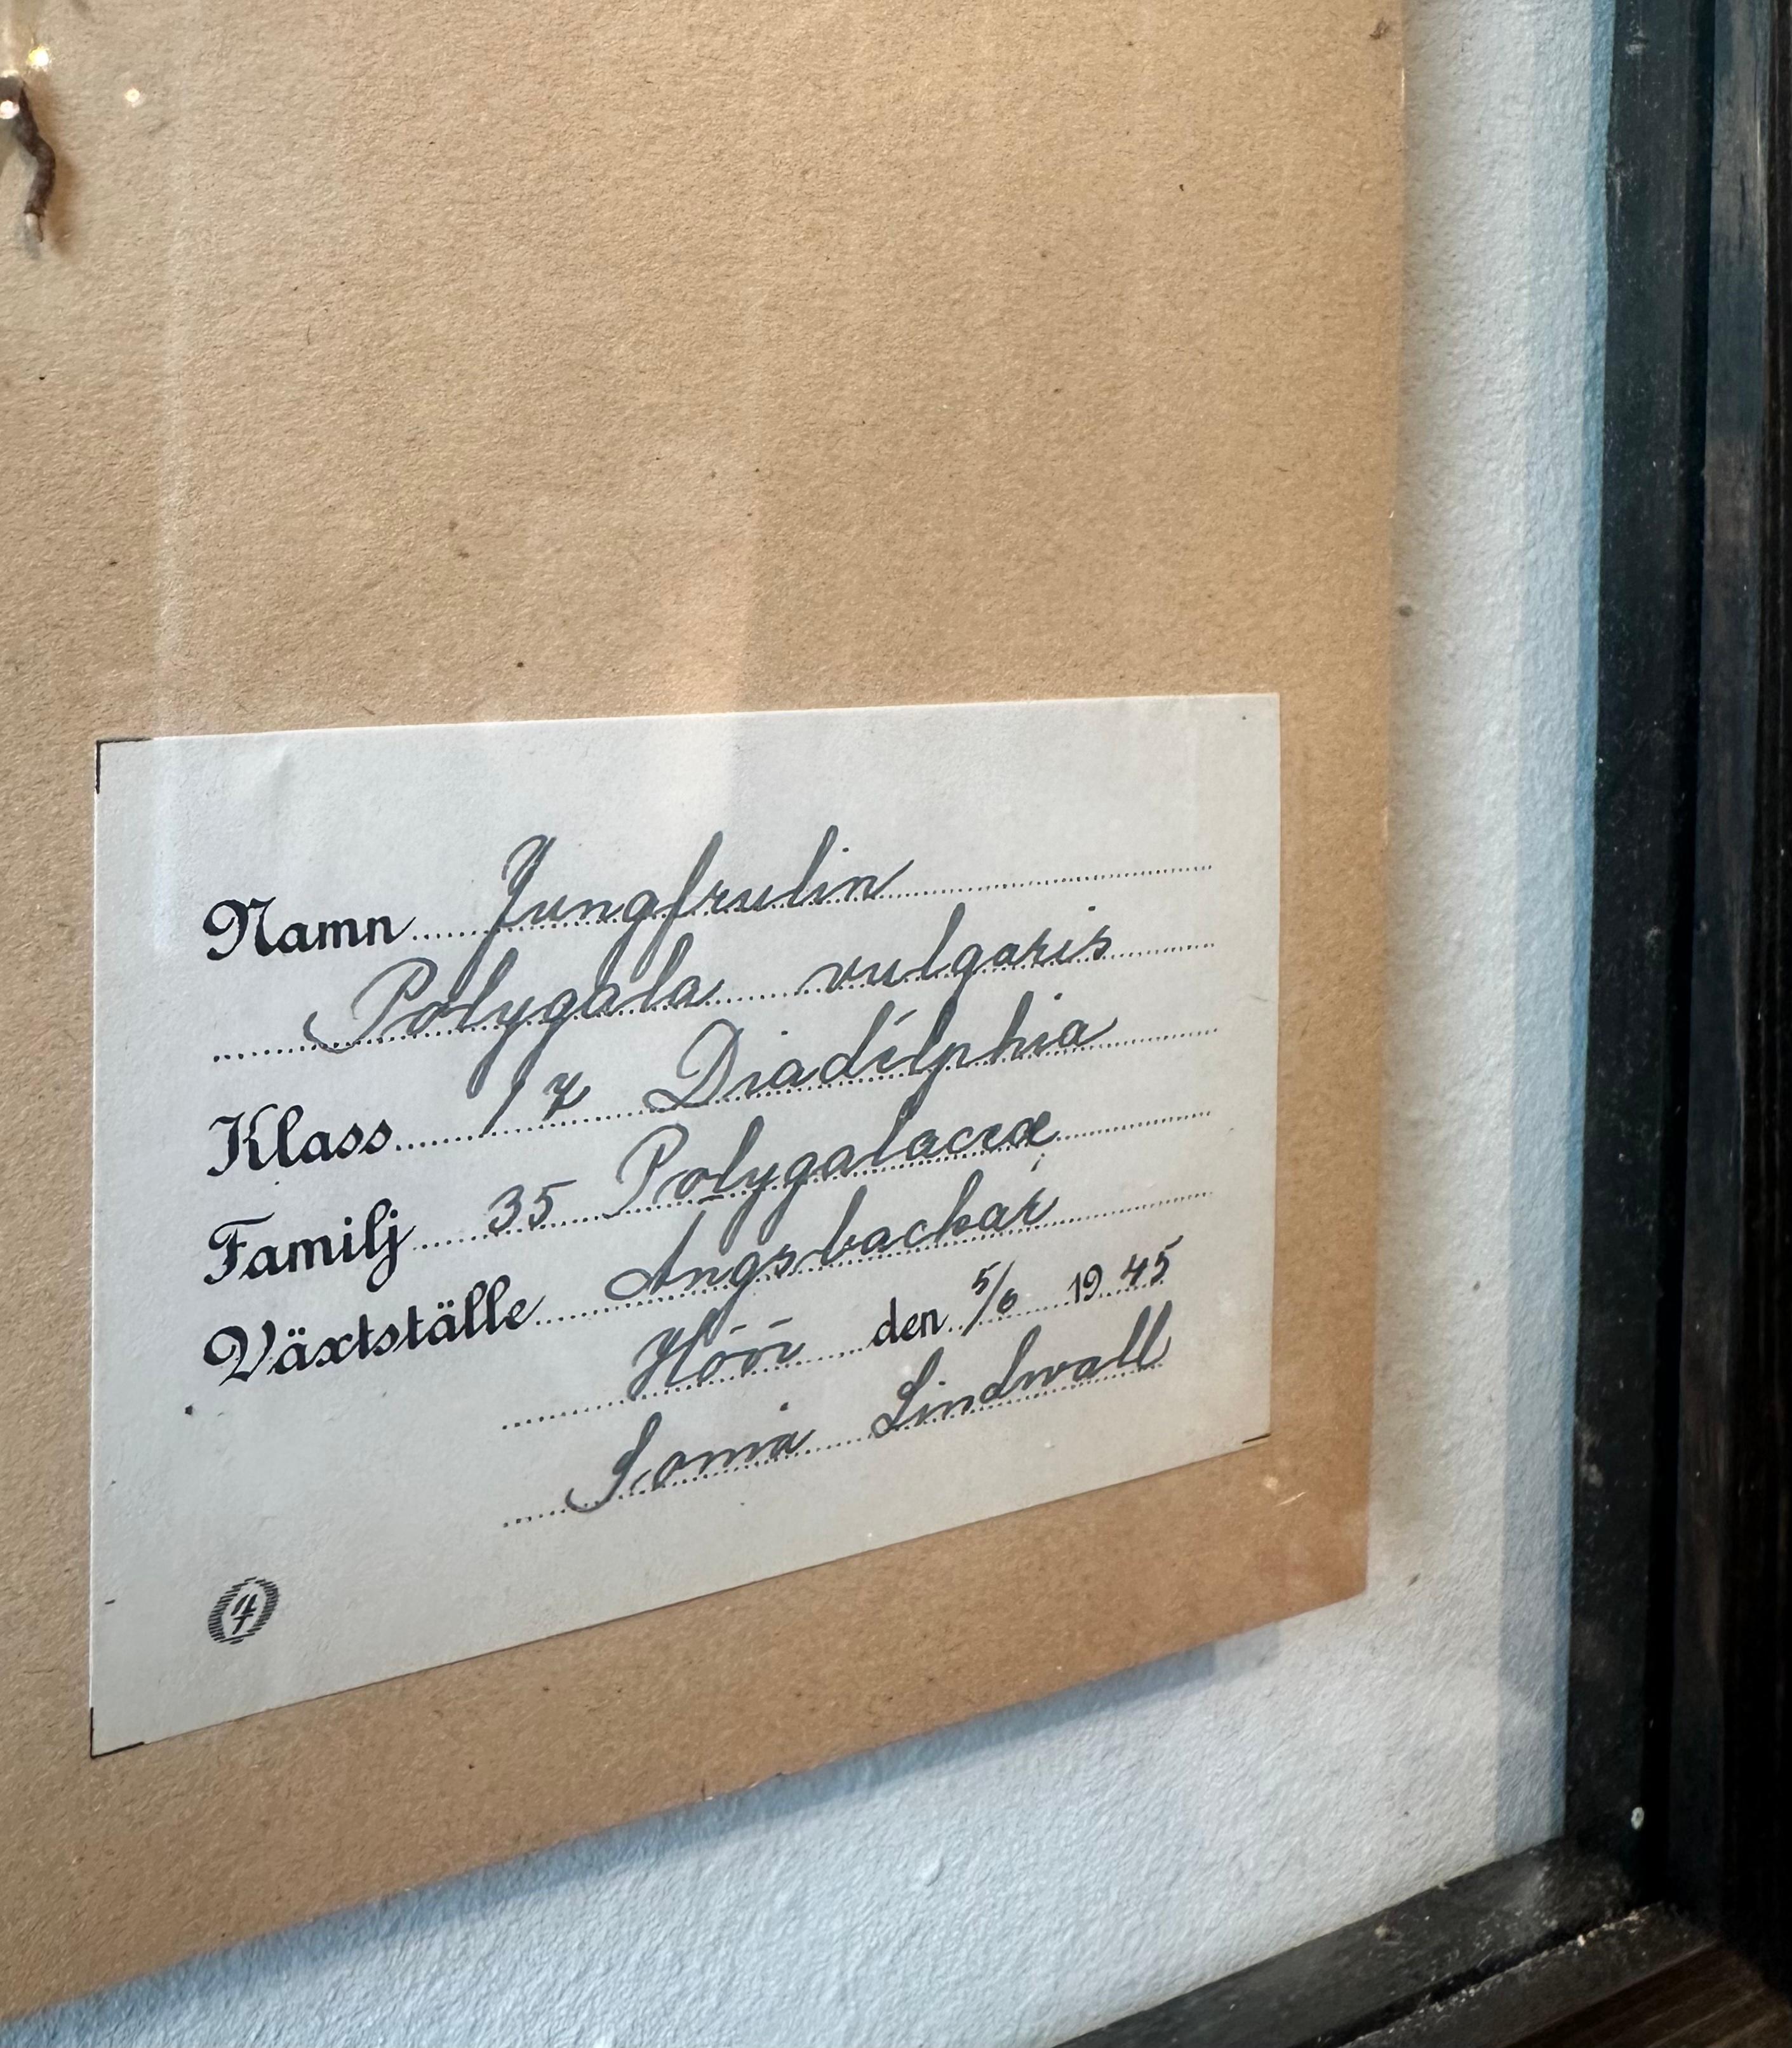 Namn Jungfrulin
Polygala vulgaris
Klass 17 Diadelphia
Familj 35 Polygalaceæ
Växtställe Ängsbackar
Höör den 5/6 1945
Sonia Lindwall
4